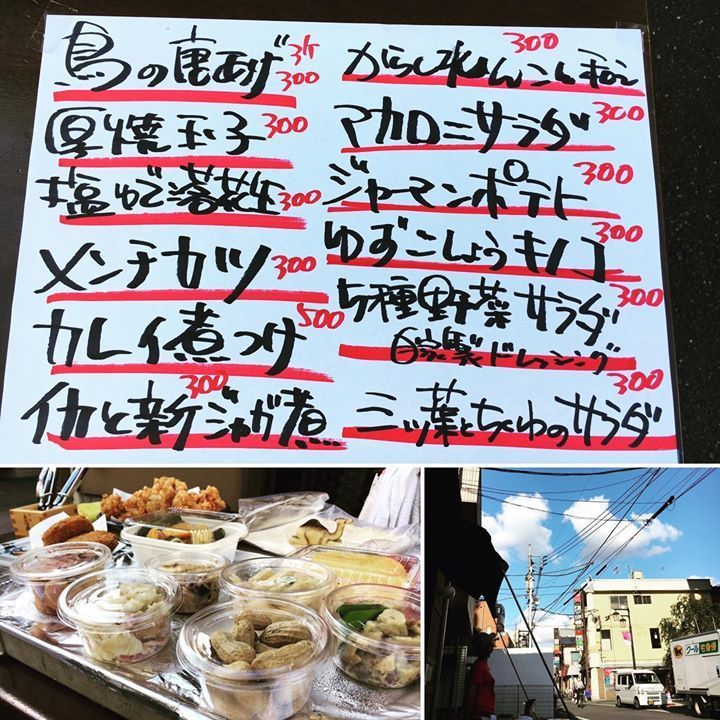 鳥の唐あげ 3ケ 300
厚焼玉子 300
塩ゆで落花生 300
メンチカツ 300
カレイ煮つけ 500
イカと新ジャガ煮 300
からしれんこん 300
マカロニサラダ 300
ジャーマンポテト 300
ゆずこしょうキノコ 300
5種野菜サラダ 300
自家製ドレッシング
三ッ葉とちくわのサラダ 300
クール宅急便